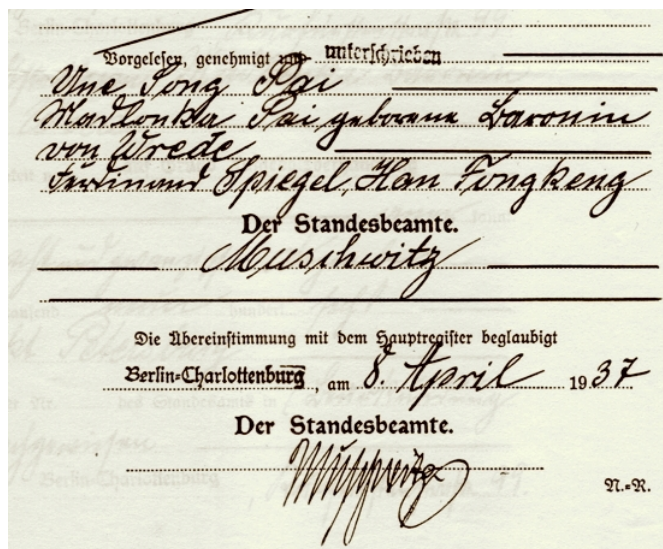 Vorgelesen, genehmigt und unterschrieben
Une Song Pai
Madlonka Pai geborene Baronin
von Wrede
Ferdinand Spiegel, Han Tongkeng
Der Standesbeamte.
Muschwitz
Die Übereinstimmung mit dem Hauptregister beglaubigt
Berlin-Charlottenburg, am 8. April 1937
Der Standesbeamte.
Muschwitz
N.=R.